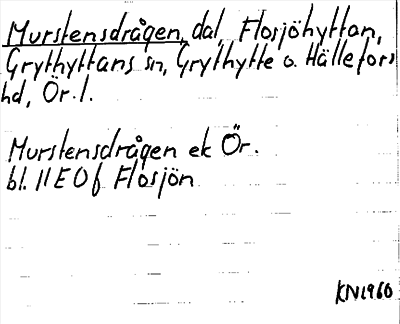 Murstensdrågen, dal, Flosjöhyttan,
Grythyttans sn, Grythytte o. Hällefors
hd, Ör. l.
Murstensdrågen ek Ör.
bl. 11E0f Flosjön
KN1960